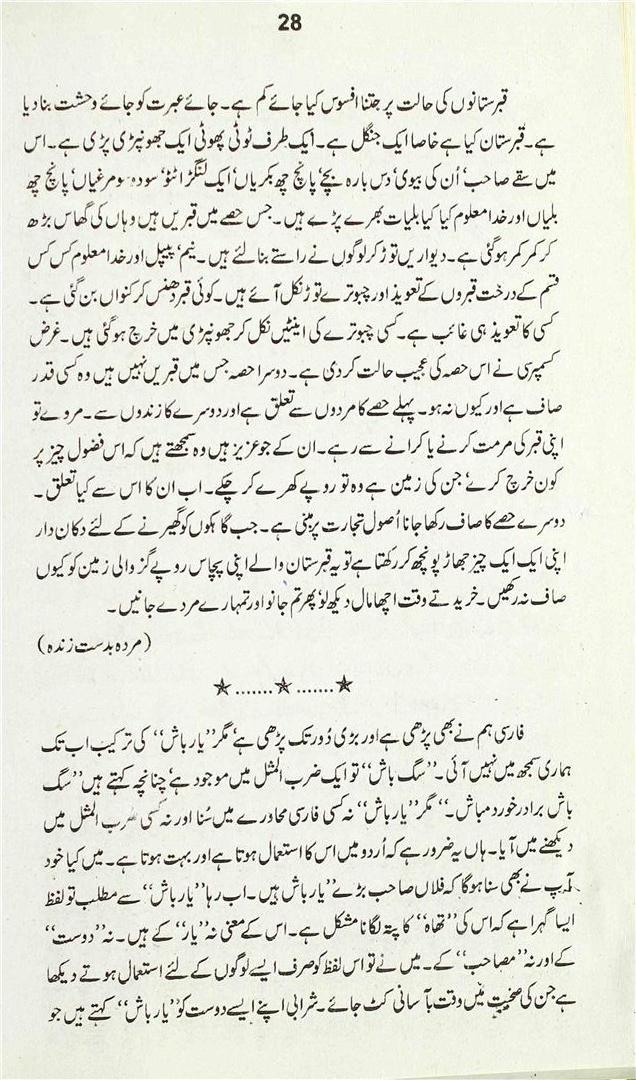 28
قبرستانوں کی حالت پر جتنا افسوس کیا جائے کم ہے۔ جائے عبرت کو جائے وحشت بنا دیا
ہے۔ قبرستان کیا ہے خاصا ایک جنگل ہے۔ ایک طرف ٹوٹی پھوٹی ایک جھونپڑی پڑی ہے۔ اس
میں سقے صاحب‘ اُن کی بیوی‘ دس بارہ بچے‘ پانچ چھ بکریاں‘ ایک لنگڑا ٹٹو‘ سو دو سو مرغیاں‘ پانچ چھ
بلیاں اور خدا معلوم کیا کیا بلیات بھرے پڑے ہیں۔ جس حصے میں قبریں ہیں وہاں کی گھاس بڑھ
کر کمر کمر ہو گئی ہے۔ دیواریں توڑ کر لوگوں نے راستے بنا لئے ہیں۔ نیم‘ پیپل اور خدا معلوم کس کس
قسم کے درخت قبروں کے تعویذ اور چبوترے توڑ نکل آئے ہیں۔ کوئی قبر دھنس کر کنواں بن گئی ہے۔
کسی کا تعویذ ہی غائب ہے۔ کسی چبوترے کی اینٹیں نکل کر جھونپڑی میں خرچ ہو گئی ہیں۔ غرض
کسمپرسی نے اس حصہ کی عجیب حالت کر دی ہے۔ دوسرا حصہ جس میں قبریں نہیں ہیں وہ کسی قدر
صاف ہے اور کیوں نہ ہو۔ پہلے حصے کا مردوں سے تعلق ہے اور دوسرے کا زندوں سے۔ مردے تو
اپنی قبر کی مرمت کرنے یا کرانے سے رہے۔ ان کے جو عزیز ہیں وہ سمجھتے ہیں کہ اس فضول چیز پر
کون خرچ کرے‘ جن کی زمین ہے وہ تو روپے کھرے کر چکے۔ اب ان کا اس سے کیا تعلق۔
دوسرے حصے کا صاف رکھا جانا اُصول تجارت پر مبنی ہے۔ جب گاہکوں کو گھیرنے کے لئے دکان دار
اپنی ایک ایک چیز جھاڑ پونچھ کر رکھتا ہے تو یہ قبرستان والے اپنی پچاس روپے گز والی زمین کو کیوں
صاف نہ رکھیں۔ خریدتے وقت اچھا مال دیکھ لو‘ پھر تم جانو اور تمہارے مردے جانیں۔
(مردہ بدست زندہ)
☆.......☆.......☆
فارسی ہم نے بھی پڑھی ہے اور بڑی دُور تک پڑھی ہے‘ مگر ’’یار باش‘‘ کی ترکیب اب تک
ہماری سمجھ میں نہیں آئی۔ ’’سگ باش‘‘ تو ایک ضرب المثل میں موجود ہے‘ چنانچہ کہتے ہیں ’’سگ
باش برادر خورد مباش۔‘‘ مگر ’’یار باش‘‘ نہ کسی فارسی محاورے میں سُنا اور نہ کسی ضرب المثل میں
دیکھنے میں آیا۔ ہاں یہ ضرور ہے کہ اُردو میں اس کا استعمال ہوتا ہے اور بہت ہوتا ہے۔ میں کیا خود
آپ نے بھی سنا ہوگا کہ فلاں صاحب بڑے ’’یار باش ہیں۔ اب رہا ’’یار باش‘‘ سے مطلب تو لفظ
ایسا گہرا ہے کہ اس کی ’’تھاہ‘‘ کا پتہ لگانا مشکل ہے۔ اس کے معنی نہ ’’یار‘‘ کے ہیں۔ نہ ’’دوست‘‘
کے اور نہ ’’مصاحب‘‘ کے۔ میں نے تو اس لفظ کو صرف ایسے لوگوں کے لئے استعمال ہوتے دیکھا
ہے جن کی صحبت میں وقت بآسانی کٹ جائے۔ شرابی اپنے ایسے دوست کو ’’یار باش‘‘ کہتے ہیں جو